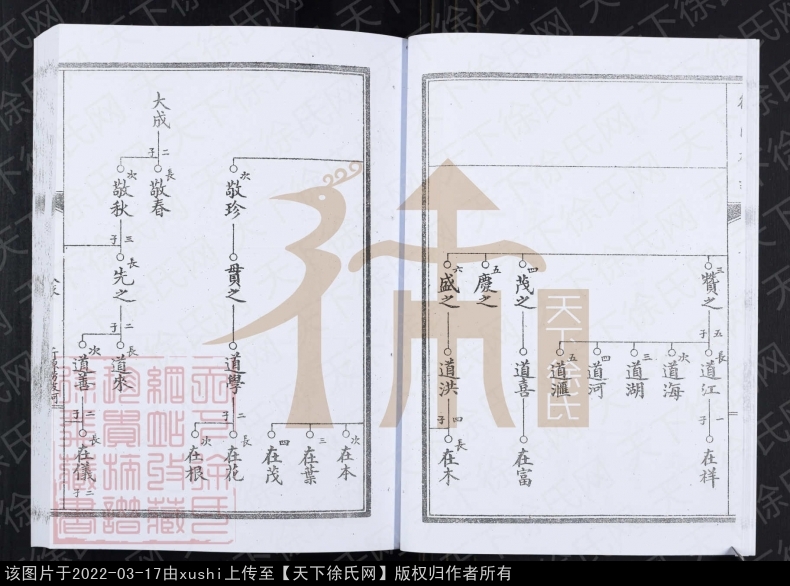 三
贊之
五子
長
道江
次
道海
三
道湖
四
道河
五
道滙
一子
在祥
四
茂之
道喜
在富
五
慶之
六
盛之
道洪
四子
長
在木
次
在本
三
在葉
四
在茂
次
敬珍
貫之
道學
二子
長
在花
次
在根
大成
二子
長
敬春
次
敬秋
三子
長
先之
二子
長
道來
次
道善
二子
長
在儀
二子
天下徐氏
天下徐氏网
该图片于2022-03-17由xushi上传至【天下徐氏网】版权归作者所有